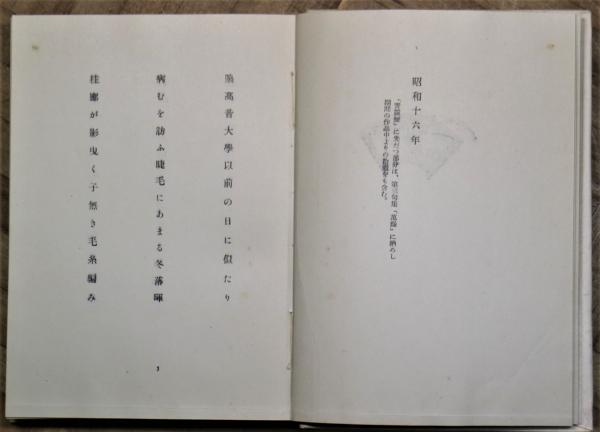 昭和十六年
に先だつ部分は、第三句集「萬緑」に納めし
同期の作品中よりの
をも含む。
高音大學以前の日に似たり
病むを訪ふ睫毛にあまる冬落暉
桂郎が影曳く子無き毛糸編み
3